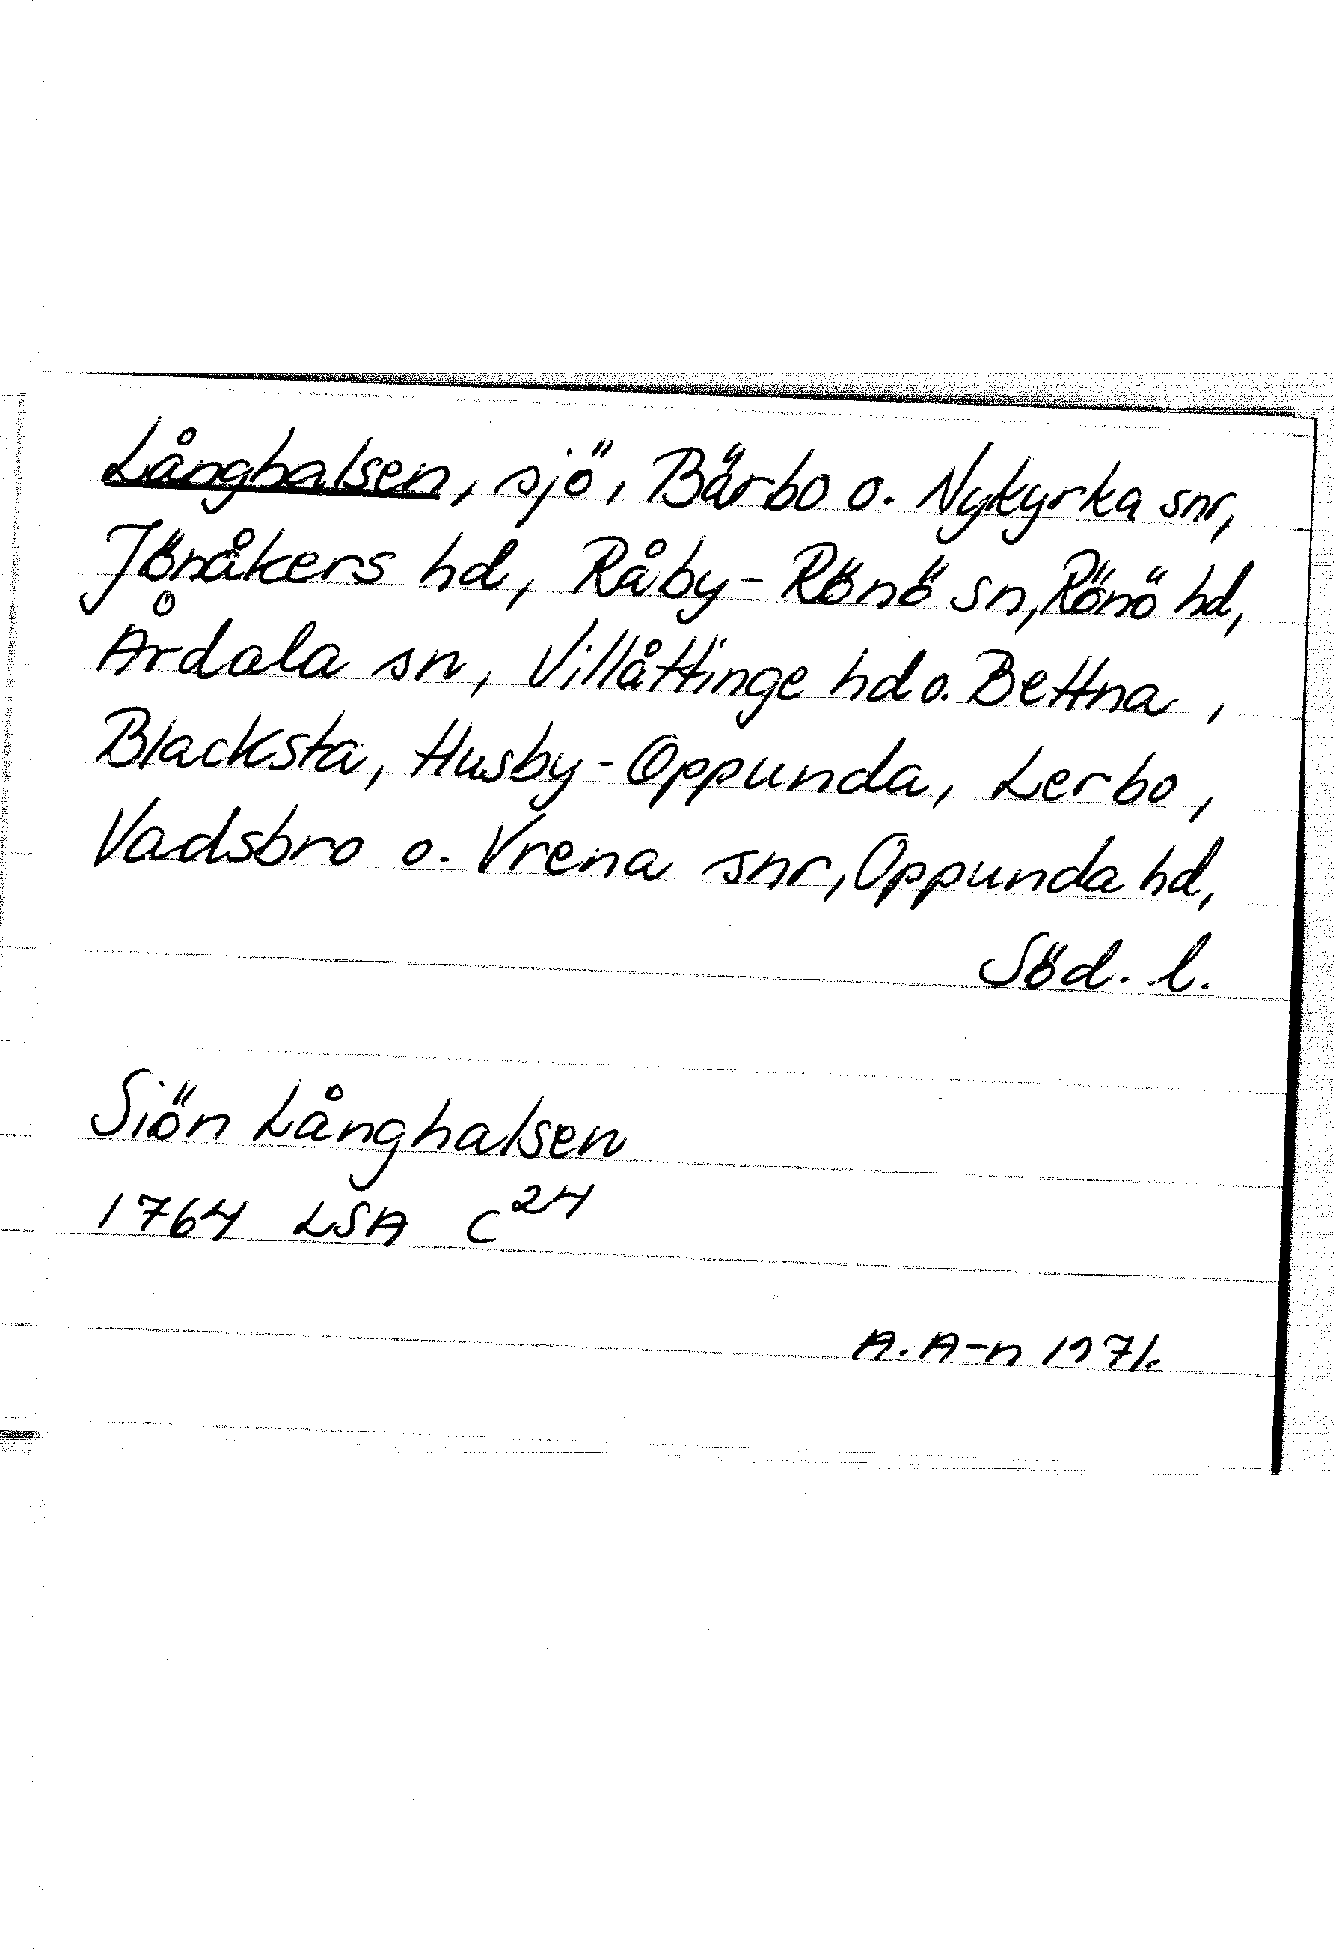 Långhalsen, sjö, Bärbo o. Nykyrka snr,
Jönåkers hd, Råby-Rönö sn, Rönö hd,
Årdala sn, Villåttinge hd o. Bettna,
Blacksta, Husby-Oppunda, Lerbo,
Vadsbro o. Vrena snr, Oppunda hd,
Söd. l.
Siön Långhalsen
1764 LSA C²⁴
A. A-n 1971.